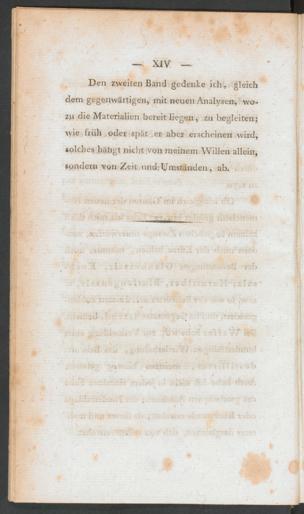 — XIV —
Den zweiten Band gedenke ich, gleich
dem gegenwärtigen, mit neuen Analysen, wo-
zu die Materialien bereit liegen, zu begleiten;
wie früh oder spät er aber erscheinen wird,
solches hängt nicht von meinem Willen allein,
sondern von Zeit und Umständen, ab.